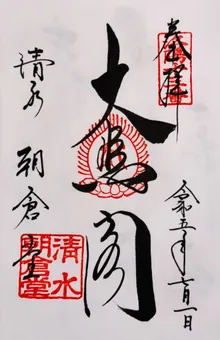 奉拝
大悲閣
清水 朝倉堂
令和五年七月一日
清水
朝倉堂